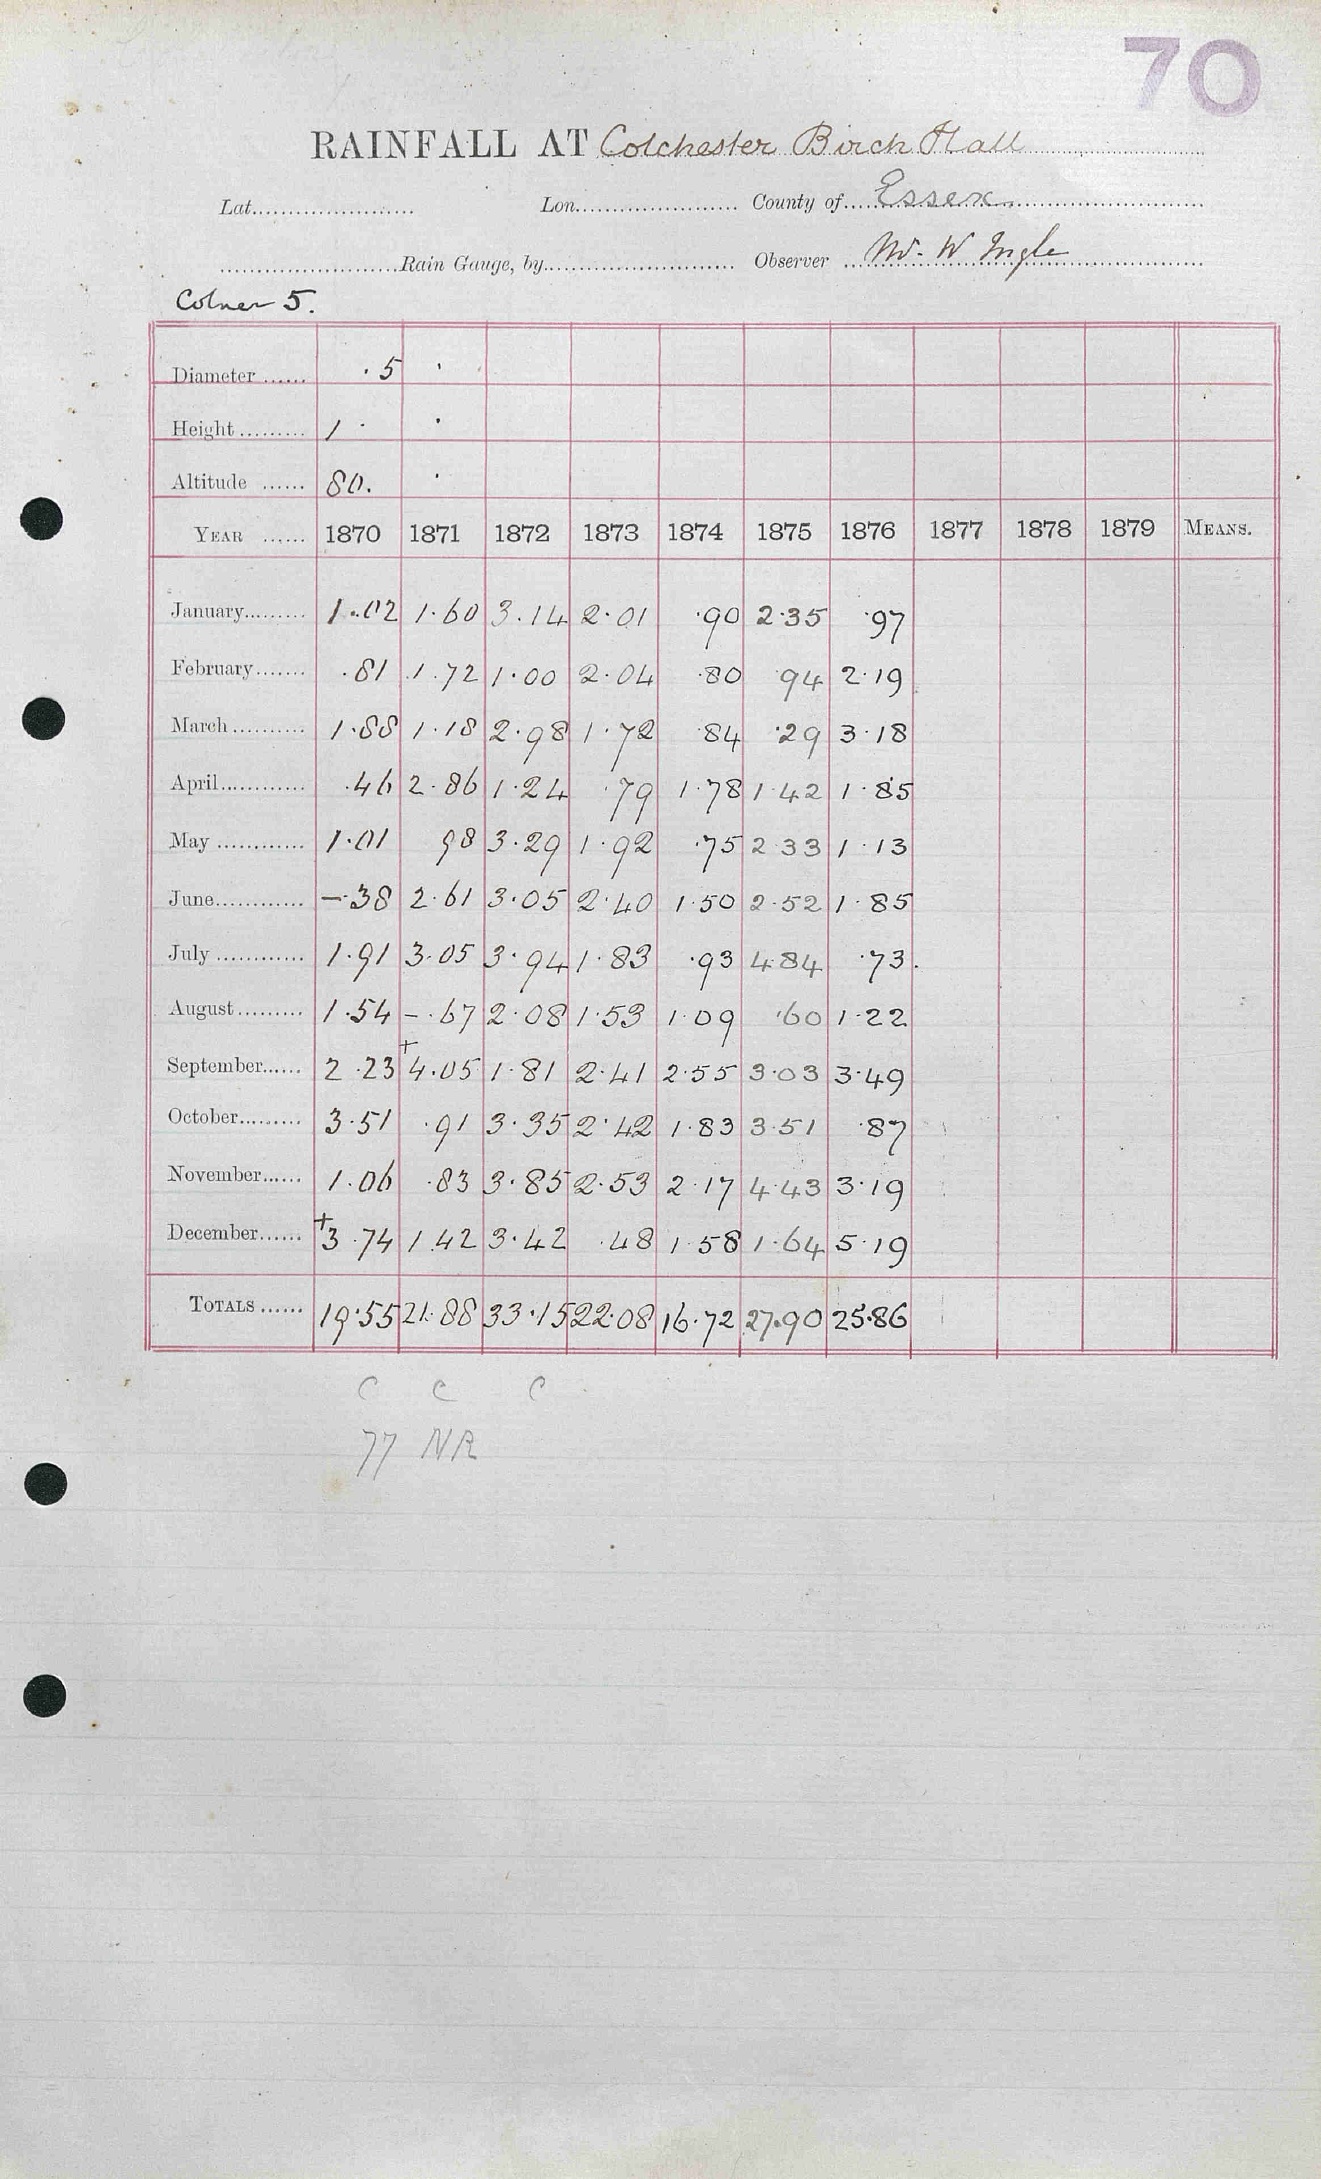 70
RAINFALL AT Colchester Birch Hall
Lat....................... Lon....................... County of....Essex....
..........................Rain Gauge, by........................... Observer ..Mr. W Ingle
Colner 5.
Diameter ...... ·5 ·
Height......... 1 · ·
Altitude ...... 80. ·
YEAR ...... 1870 1871 1872 1873 1874 1875 1876 1877 1878 1879 MEANS.
January......... 1·02 1·60 3.14 2·01 ·90 2·35 ·97
February....... ·81 1.72 1·00 2·04 ·80 94 2·19
March.......... 1·88 1·18 2·98 1·72 84 ·29 3·18
April............ ·46 2·86 1·24 ·79 1·78 1·42 1·85
May ............ 1·01 98 3·29 1·92 ·75 2 33 1·13
June............ –·38 2·61 3·05 2·40 1·50 2·52 1·85
July ............ 1·91 3·05 3·94 1·83 ·93 4·84 ·73.
August......... 1·54 –·67 2·08 1·53 1·09 ·60 1·22
September...... 2·23 +4·05 1·81 2·41 2·55 3·03 3·49
October......... 3·51 ·91 3·35 2·42 1·83 3·51 ·87
November...... 1·06 ·83 3·85 2·53 2·17 4·43 3·19
December...... +3·74 1.42 3·42 ·48 1·58 1·64 5·19
TOTALS ...... 19·55 21·88 33·15 22·08 16·72 27·90 25·86
C C C
77 NR